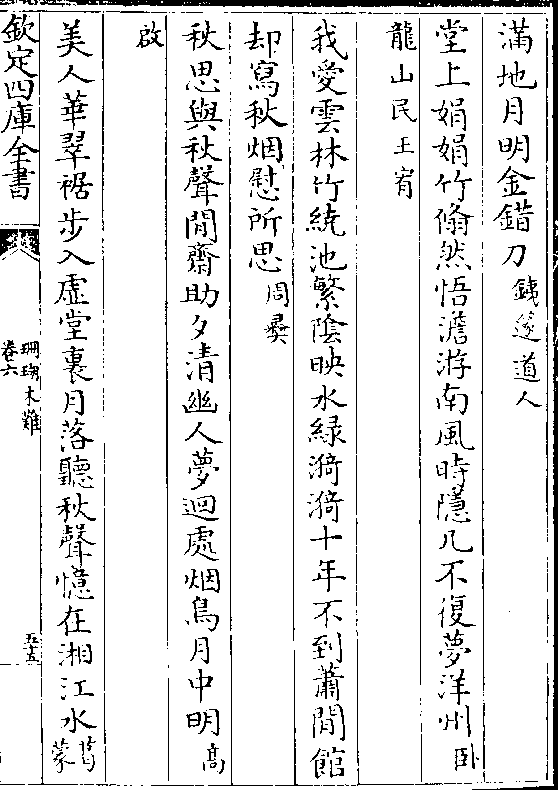 滿地月明金錯刀鐵篴道人
堂上娟娟竹翛然悟澹游南風時隱几不復夢洋州卧
龍山民王宥
我愛雲林竹繞池繁陰映水綠漪漪十年不到蕭閒館
却寫秋烟慰所思周彞
秋思與秋聲閒齋助夕清幽人夢迴處烟鳥月中明髙
啟
美人華翠裾步入虛堂裏月落聽秋聲憶在湘江水葛
蒙
欽定四庫全書
珊瑚木難
卷六
五十五